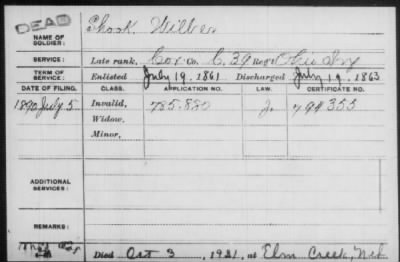 DEAD
NAME OF SOLDIER: Shook, Wilber
SERVICE: Late rank, Cor Co. C, 39 Reg't Ohio Inf
TERM OF SERVICE: Enlisted July 19, 1861 Discharged July 19, 1863
DATE OF FILING. CLASS. APPLICATION NO. LAW. CERTIFICATE NO.
1890 July 5 Invalid, 785.820 J. 794355
Widow,
Minor,
ADDITIONAL SERVICES:
REMARKS:
Died Oct 3, 1921, at Elm Creek, Neb